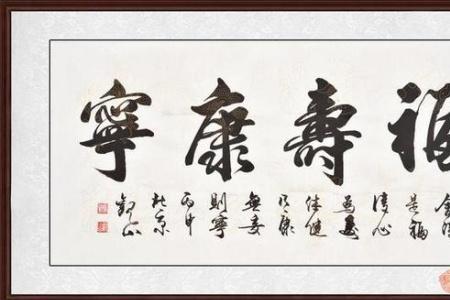 福壽康寧
是福
清心
為壽
体健
乃康
無妄
則寧
丙申